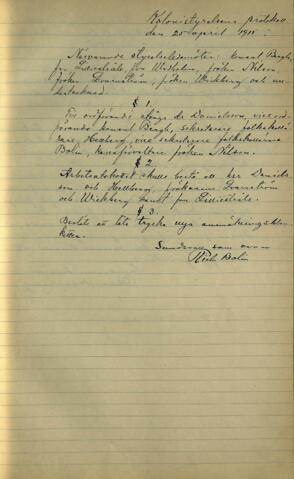 Kolonistyrelsens protokoll
den 25 april 1911.
Närvarande styrelseledamöter: konsul Bergh,
fru Lidicelius, fru Wedholm, fröken Nilson,
fröken Svarnström, fröken Wickberg och un-
dertecknad.
§ 1.
Till ordförande utsågs Danielson, vice ord-
förande konsul Bergh, sekreterare folkskollä-
rare Hedberg, vice sekreterare folkskollärare
Bolin, kassaförvaltare fröken Nilson.
§ 2.
Arbetsutskott skulle bestå af herr Daniel-
son och Hellberg, fröknarna Svarnström
och Wickberg samt fru
§ 3.
Beslöts att låta trycka nya anmälningsblan-
ketter.
Sundsvall som ovan
Bolin